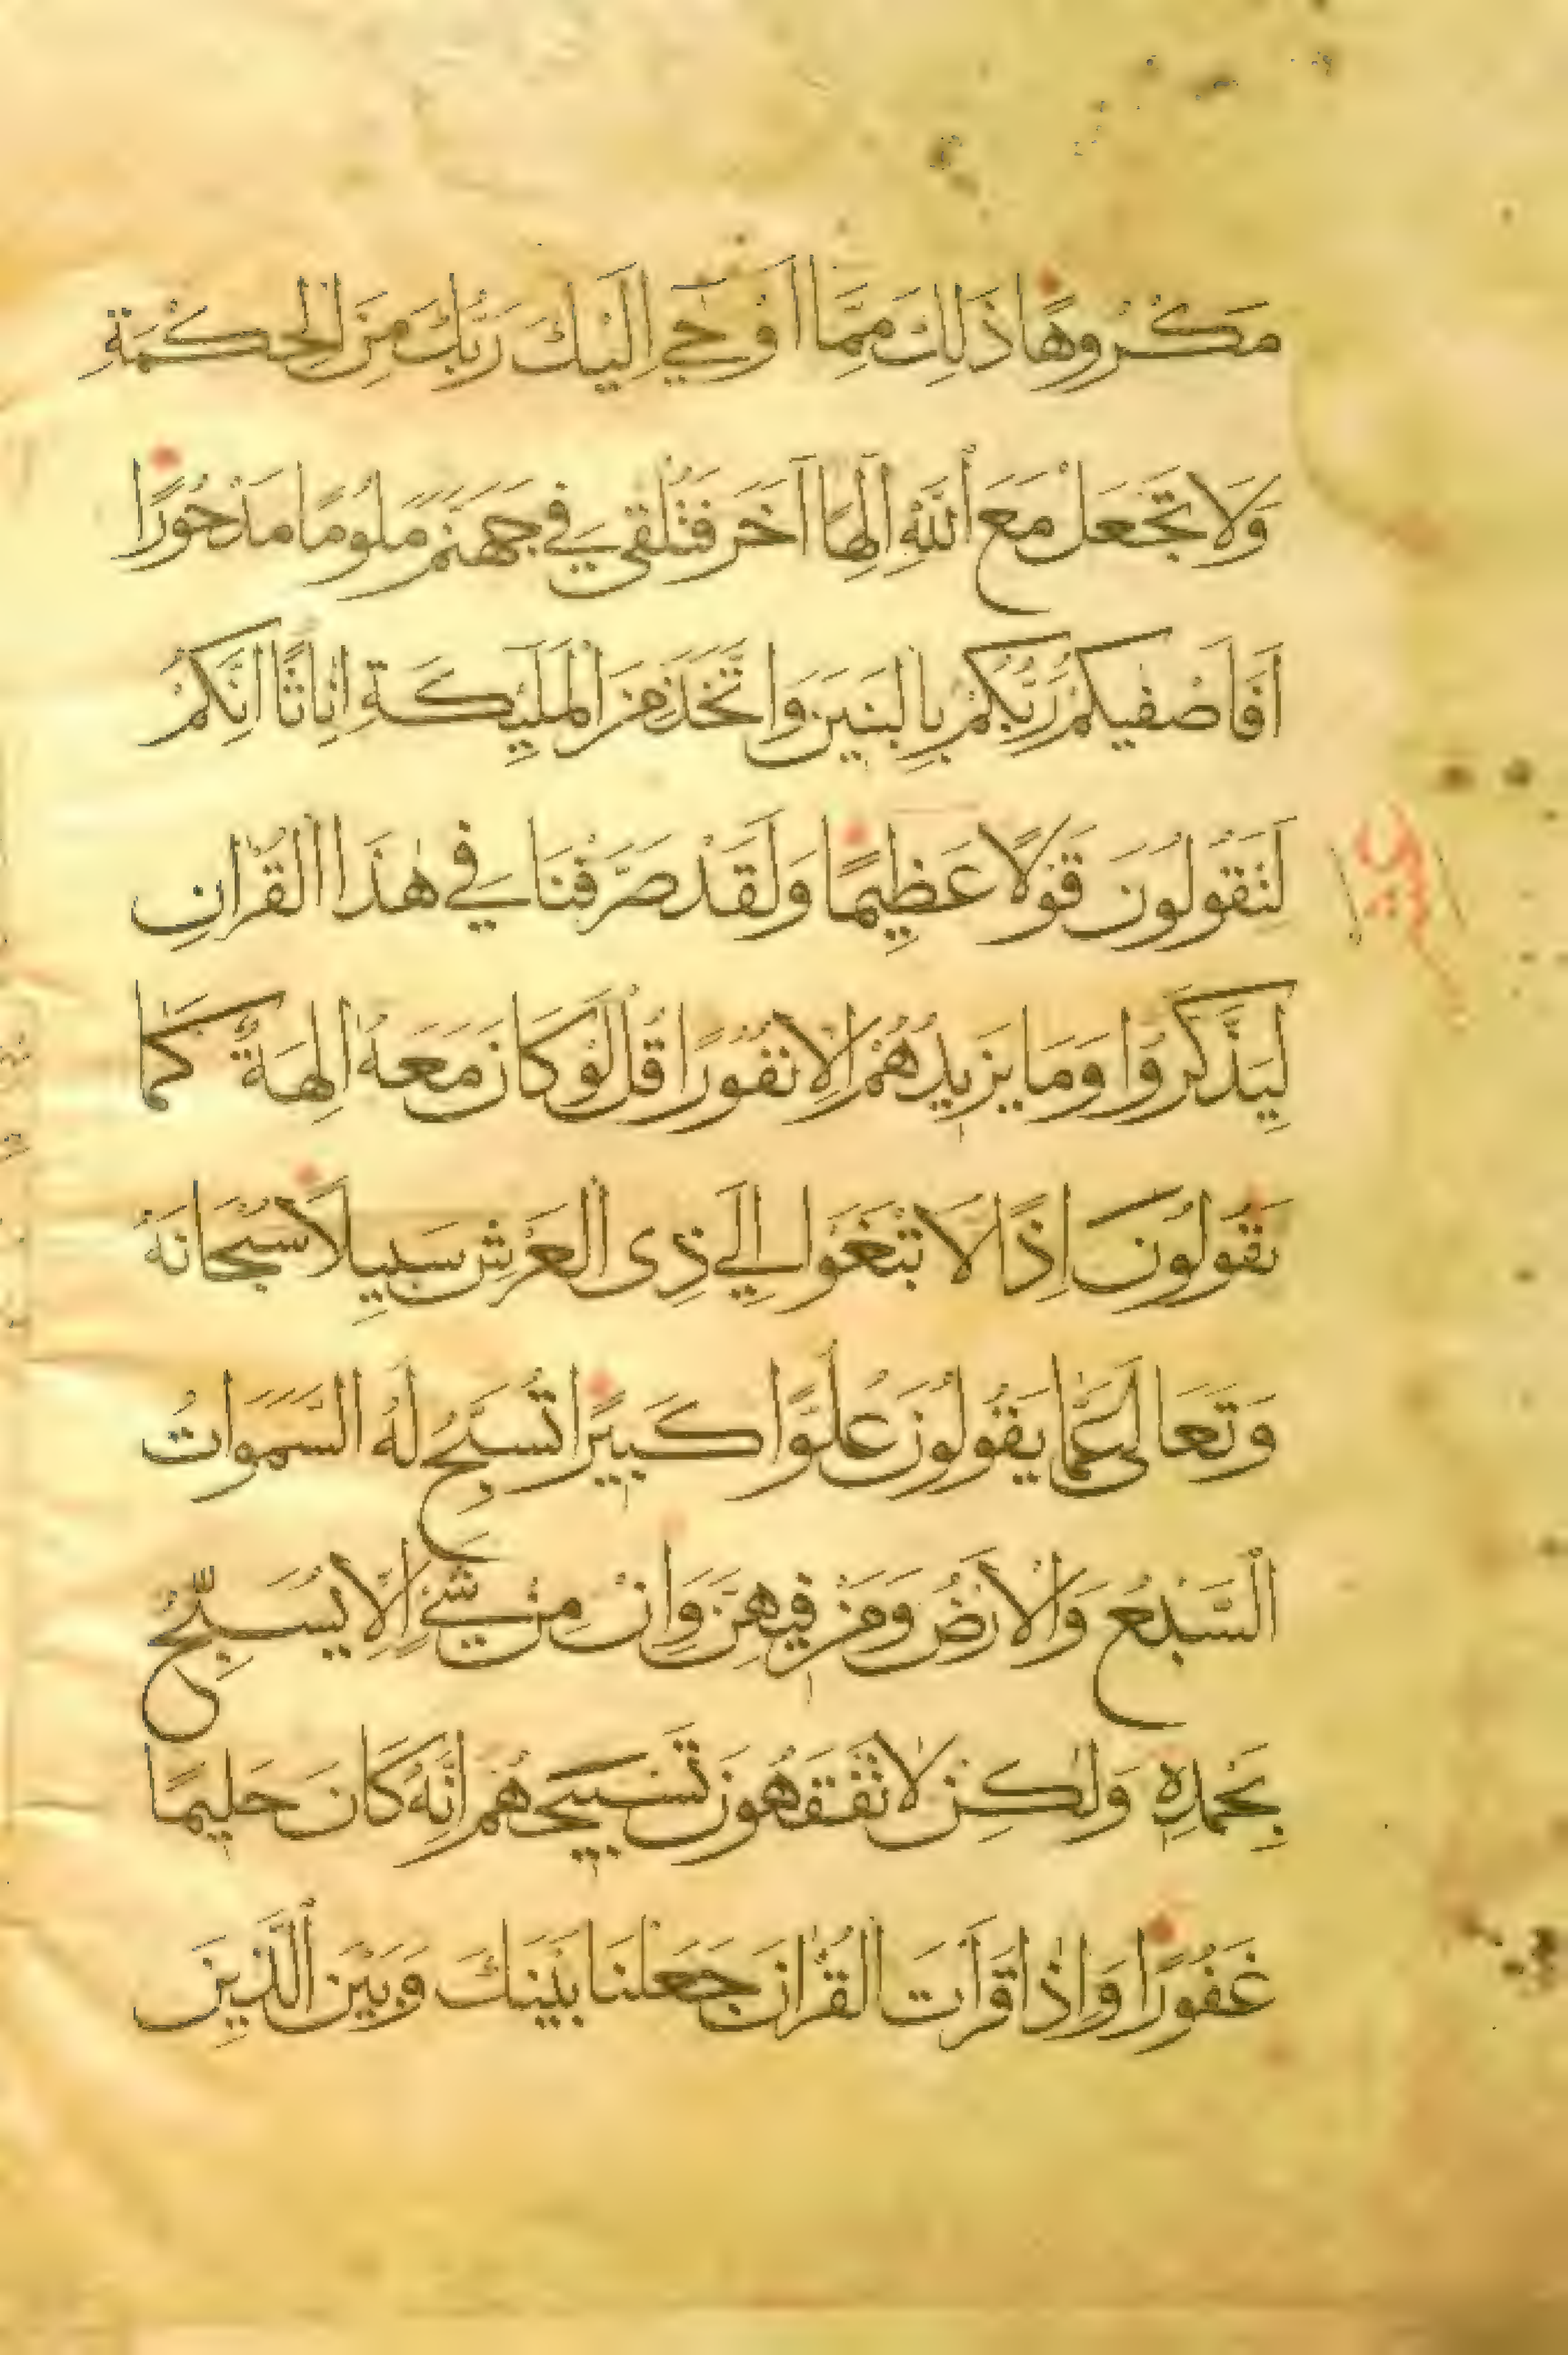 مَكْرُوهًا ذَلِكَ مِمَّا أَوْحَي اِلَيْكَ رَبُّكَ مِنَ الْحِكْمَةِ
وَلَا تَجْعَلْ مَعَ اللَّهِ اِلَهًا آخَرَ فَتُلْقَي فِي جَهَنَّمَ مَلُومًا مَدْحُورًا
اَفَاَصْفٰيكُمْ رَبُّكُمْ بِالْبَنِيَن وَاتَّخَذَ مِنَ الْمَلٰٓئِكَةِ اِنَاثًا اِنَّكُمْ
لَتَقُولُونَ قَوْلًا عَظِيمًا وَلَقَدْ صَرَّفْنَا فِي هٰذَا الْقُرْاٰنِ
لِيَذَّكَّرُوا وَمَا يَزِيدُهُمْ اِلَّا نُفُورًا قُلْ لَوْ كَانَ مَعَهُ اٰلِهَةٌ كَمَا
يَقُولُونَ اِذًا لَابْتَغَوْا اِلَي ذِى الْعَرْشِ سَبِيلًا سُبْحَانَهُ
وَتَعَالٰى عَمَّا يَقُولُونَ عُلُوًّا كَبِيرًا تُسَبِّحُ لَهُ السَّمَوَاتُ
السَّبْعُ وَالْاَرْضُ وَمَنْ فِيهِنَّ وَاِنْ مِنْ شَيْءٍ اِلَّا يُسَبِّحُ
بِحَمْدِهِ وَلٰكِنْ لَا تَفْقَهُونَ تَسْبِيحَهُمْ اِنَّهُ كَانَ حَلِيمًا
غَفُورًا وَاِذَا قَرَاْتَ الْقُرْاٰنَ جَعَلْنَا بَيْنَكَ وَبَيْنَ الَّذِينَ